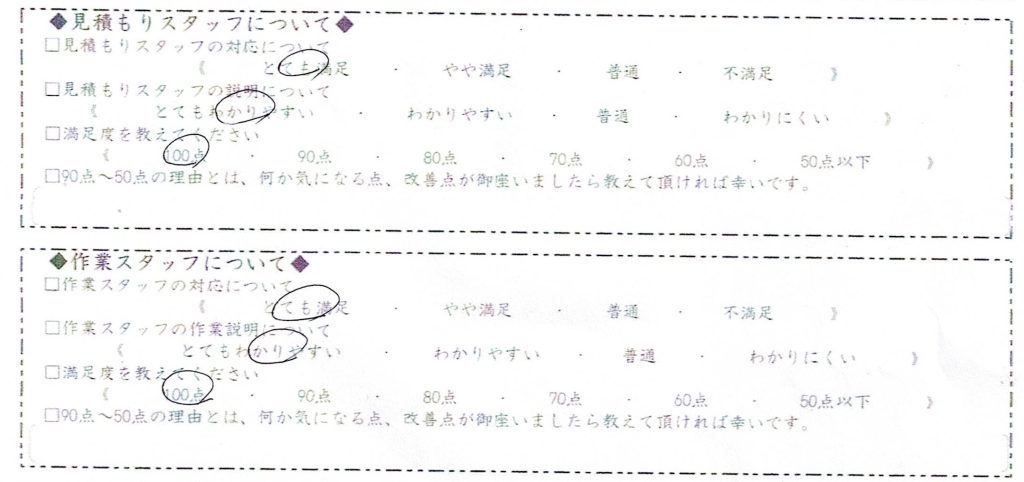 ◆見積もりスタッフについて◆
□見積もりスタッフの対応について
《 とても満足 ・ やや満足 ・ 普通 ・ 不満足 》
□見積もりスタッフの説明について
《 とてもわかりやすい ・ わかりやすい ・ 普通 ・ わかりにくい 》
□満足度を教えてください
《 100点 ・ 90点 ・ 80点 ・ 70点 ・ 60点 ・ 50点以下 》
□90点～50点の理由とは、何か気になる点、改善点が御座いましたら教えて頂ければ幸いです。
◆作業スタッフについて◆
□作業スタッフの対応について
《 とても満足 ・ やや満足 ・ 普通 ・ 不満足 》
□作業スタッフの作業説明について
《 とてもわかりやすい ・ わかりやすい ・ 普通 ・ わかりにくい 》
□満足度を教えてください
《 100点 ・ 90点 ・ 80点 ・ 70点 ・ 60点 ・ 50点以下 》
□90点～50点の理由とは、何か気になる点、改善点が御座いましたら教えて頂ければ幸いです。